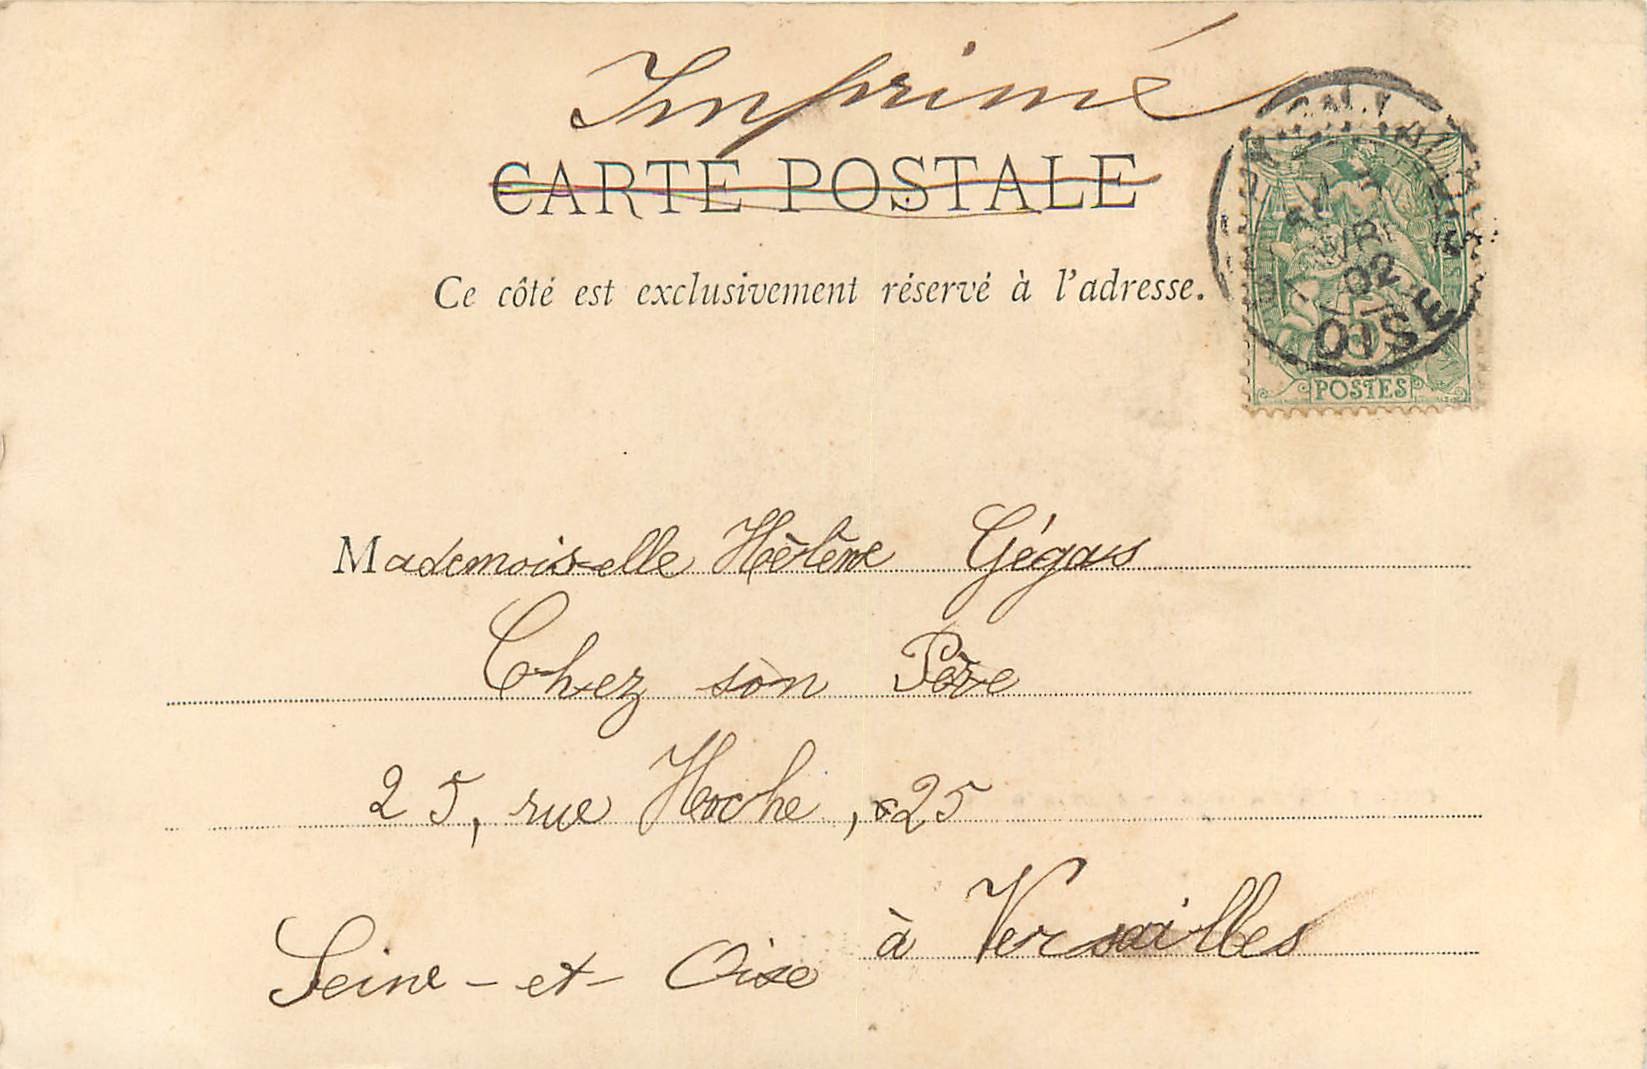 Imprimé
CARTE POSTALE
Ce côté est exclusivement réservé à l'adresse.
AVRIL
02
OISE
5
POSTES
Mademoiselle Hélène Gégas
Chez son Père
25, rue Hoche, 25
à Versailles
Seine-et-Oise